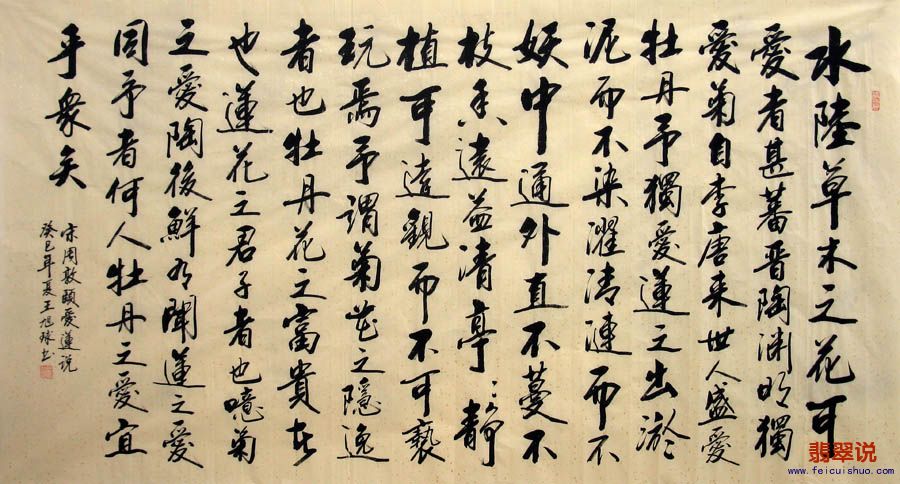 水陸草木之花可
愛者甚蕃晋陶渊明獨
愛菊自李唐来世人盛愛
牡丹予獨愛蓮之出淤
泥而不染濯清漣而不
妖中通外直不蔓不
枝香遠益清亭〻静
植可遠觀而不可褻
玩焉予謂菊花之隱逸
者也牡丹花之富貴者
也蓮花之君子者也噫菊
之愛陶後鮮有聞蓮之愛
同予者何人牡丹之愛宜
乎衆矣
宋周敦頤愛蓮説
癸巳年夏王旭球书
翡翠说
www.feicuishuo.com